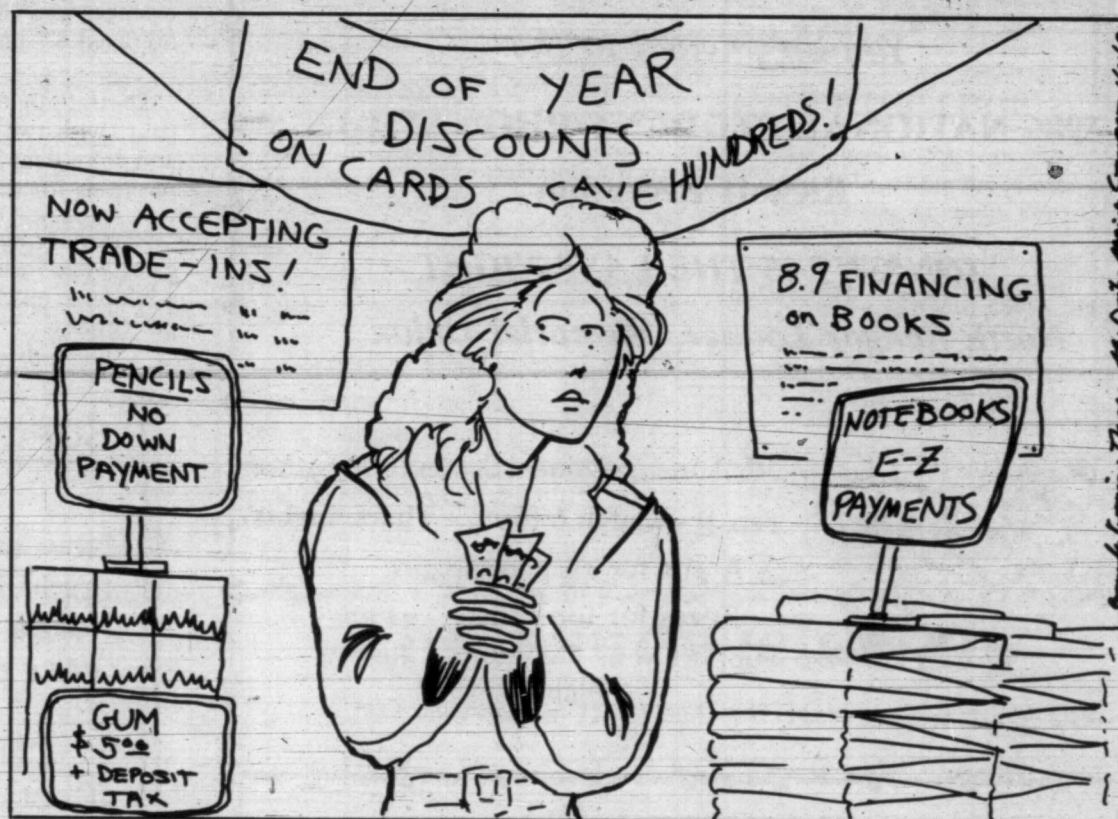 END OF YEAR
DISCOUNTS
ON CARDS HUNDREDS!
NOW ACCEPTING
TRADE-INS!
PENCILS
NO
DOWN
PAYMENT
GUM
$5.00
+ DEPOSIT
TAX
8.9 FINANCING
on BOOKS
NOTEBOOKS
E-Z
PAYMENTS